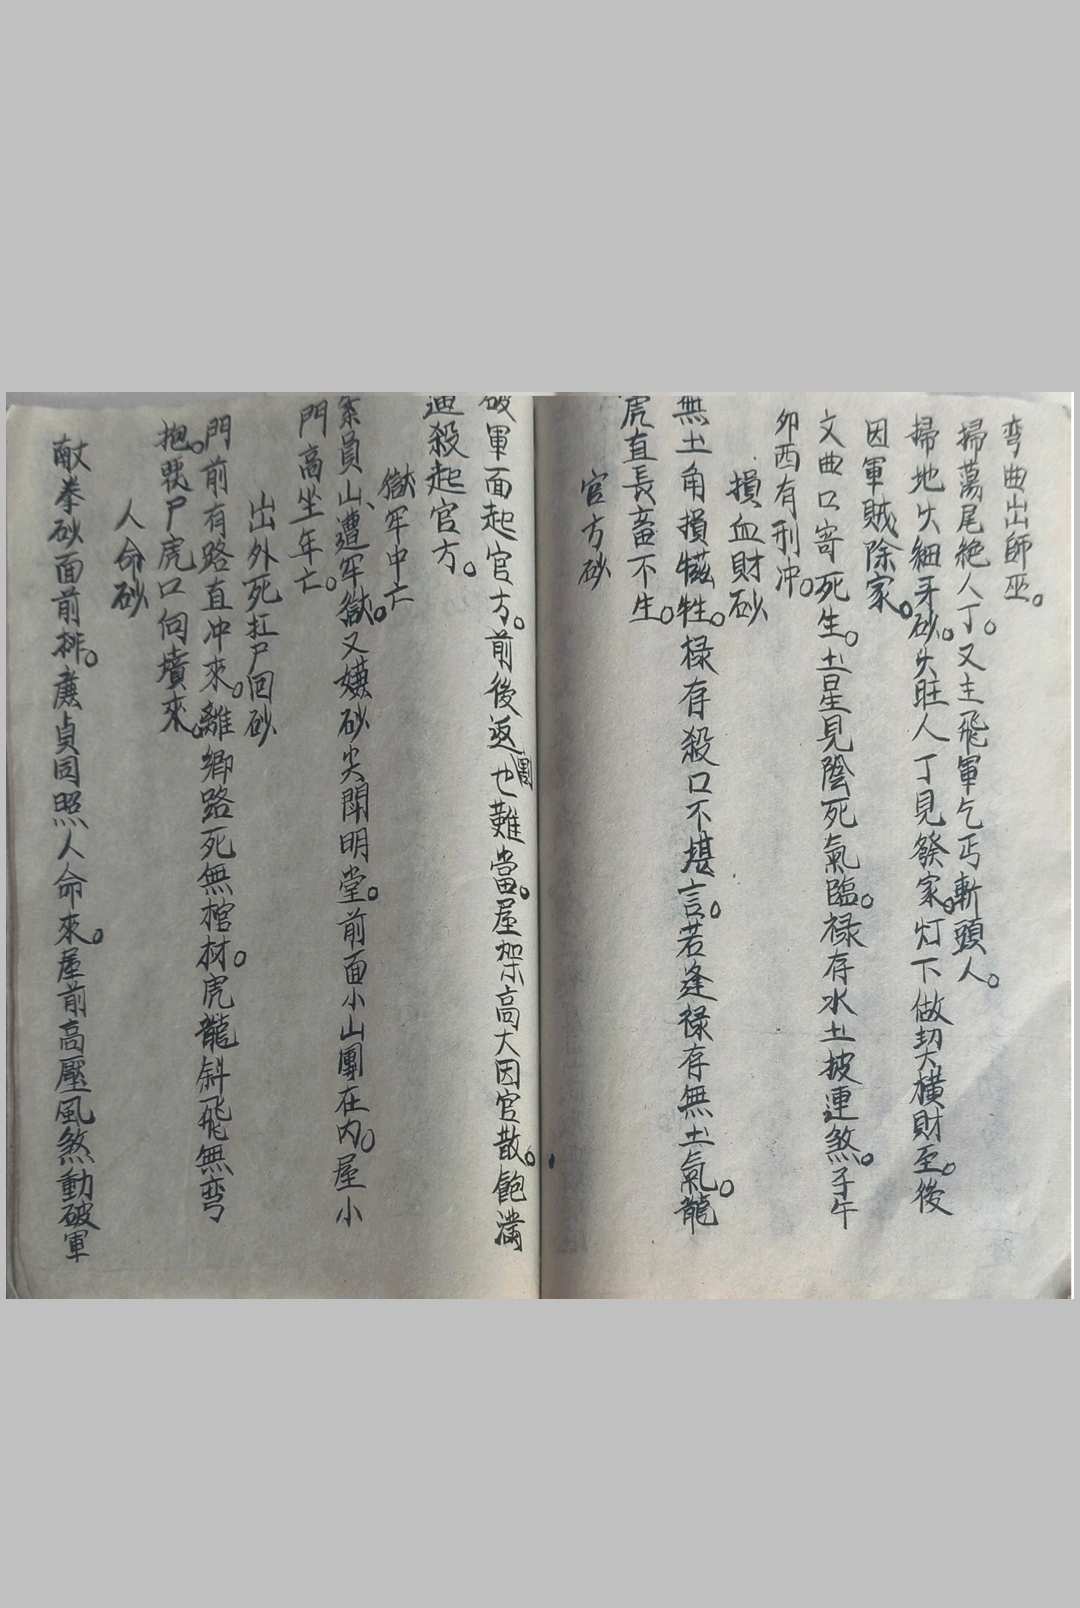 弯曲出師巫。
掃蕩尾絶人丁。又主飛軍乞丐斬頭人。
掃地少細牙砂。少旺人丁見發家。灯下做契橫財至。後
因軍賊除家。
文曲口寄死生。土星見陰死氣臨。禄存水土披連煞。子午
卯酉有刑冲。
損血財砂
無土角損犧牲。禄存殺口不堪言。若逢禄存無土氣。龍
虎直長畜不生。
官方砂
破軍面起官方。前後返圈也難當。屋架高大因官散。飽滿
逥殺起官方。
獄牢中亡
紊員山遭牢獄。又嫌砂尖閗明堂。前面小山團在内。屋小
門高坐年亡。
出外死扛尸回砂
門前有路直冲來。離鄉路死無棺材。虎龍斜飛無弯
抱。戰尸虎口向墳來。
人命砂
献拳砂面前排。廉貞同照人命來。屋前高壓風煞動破軍